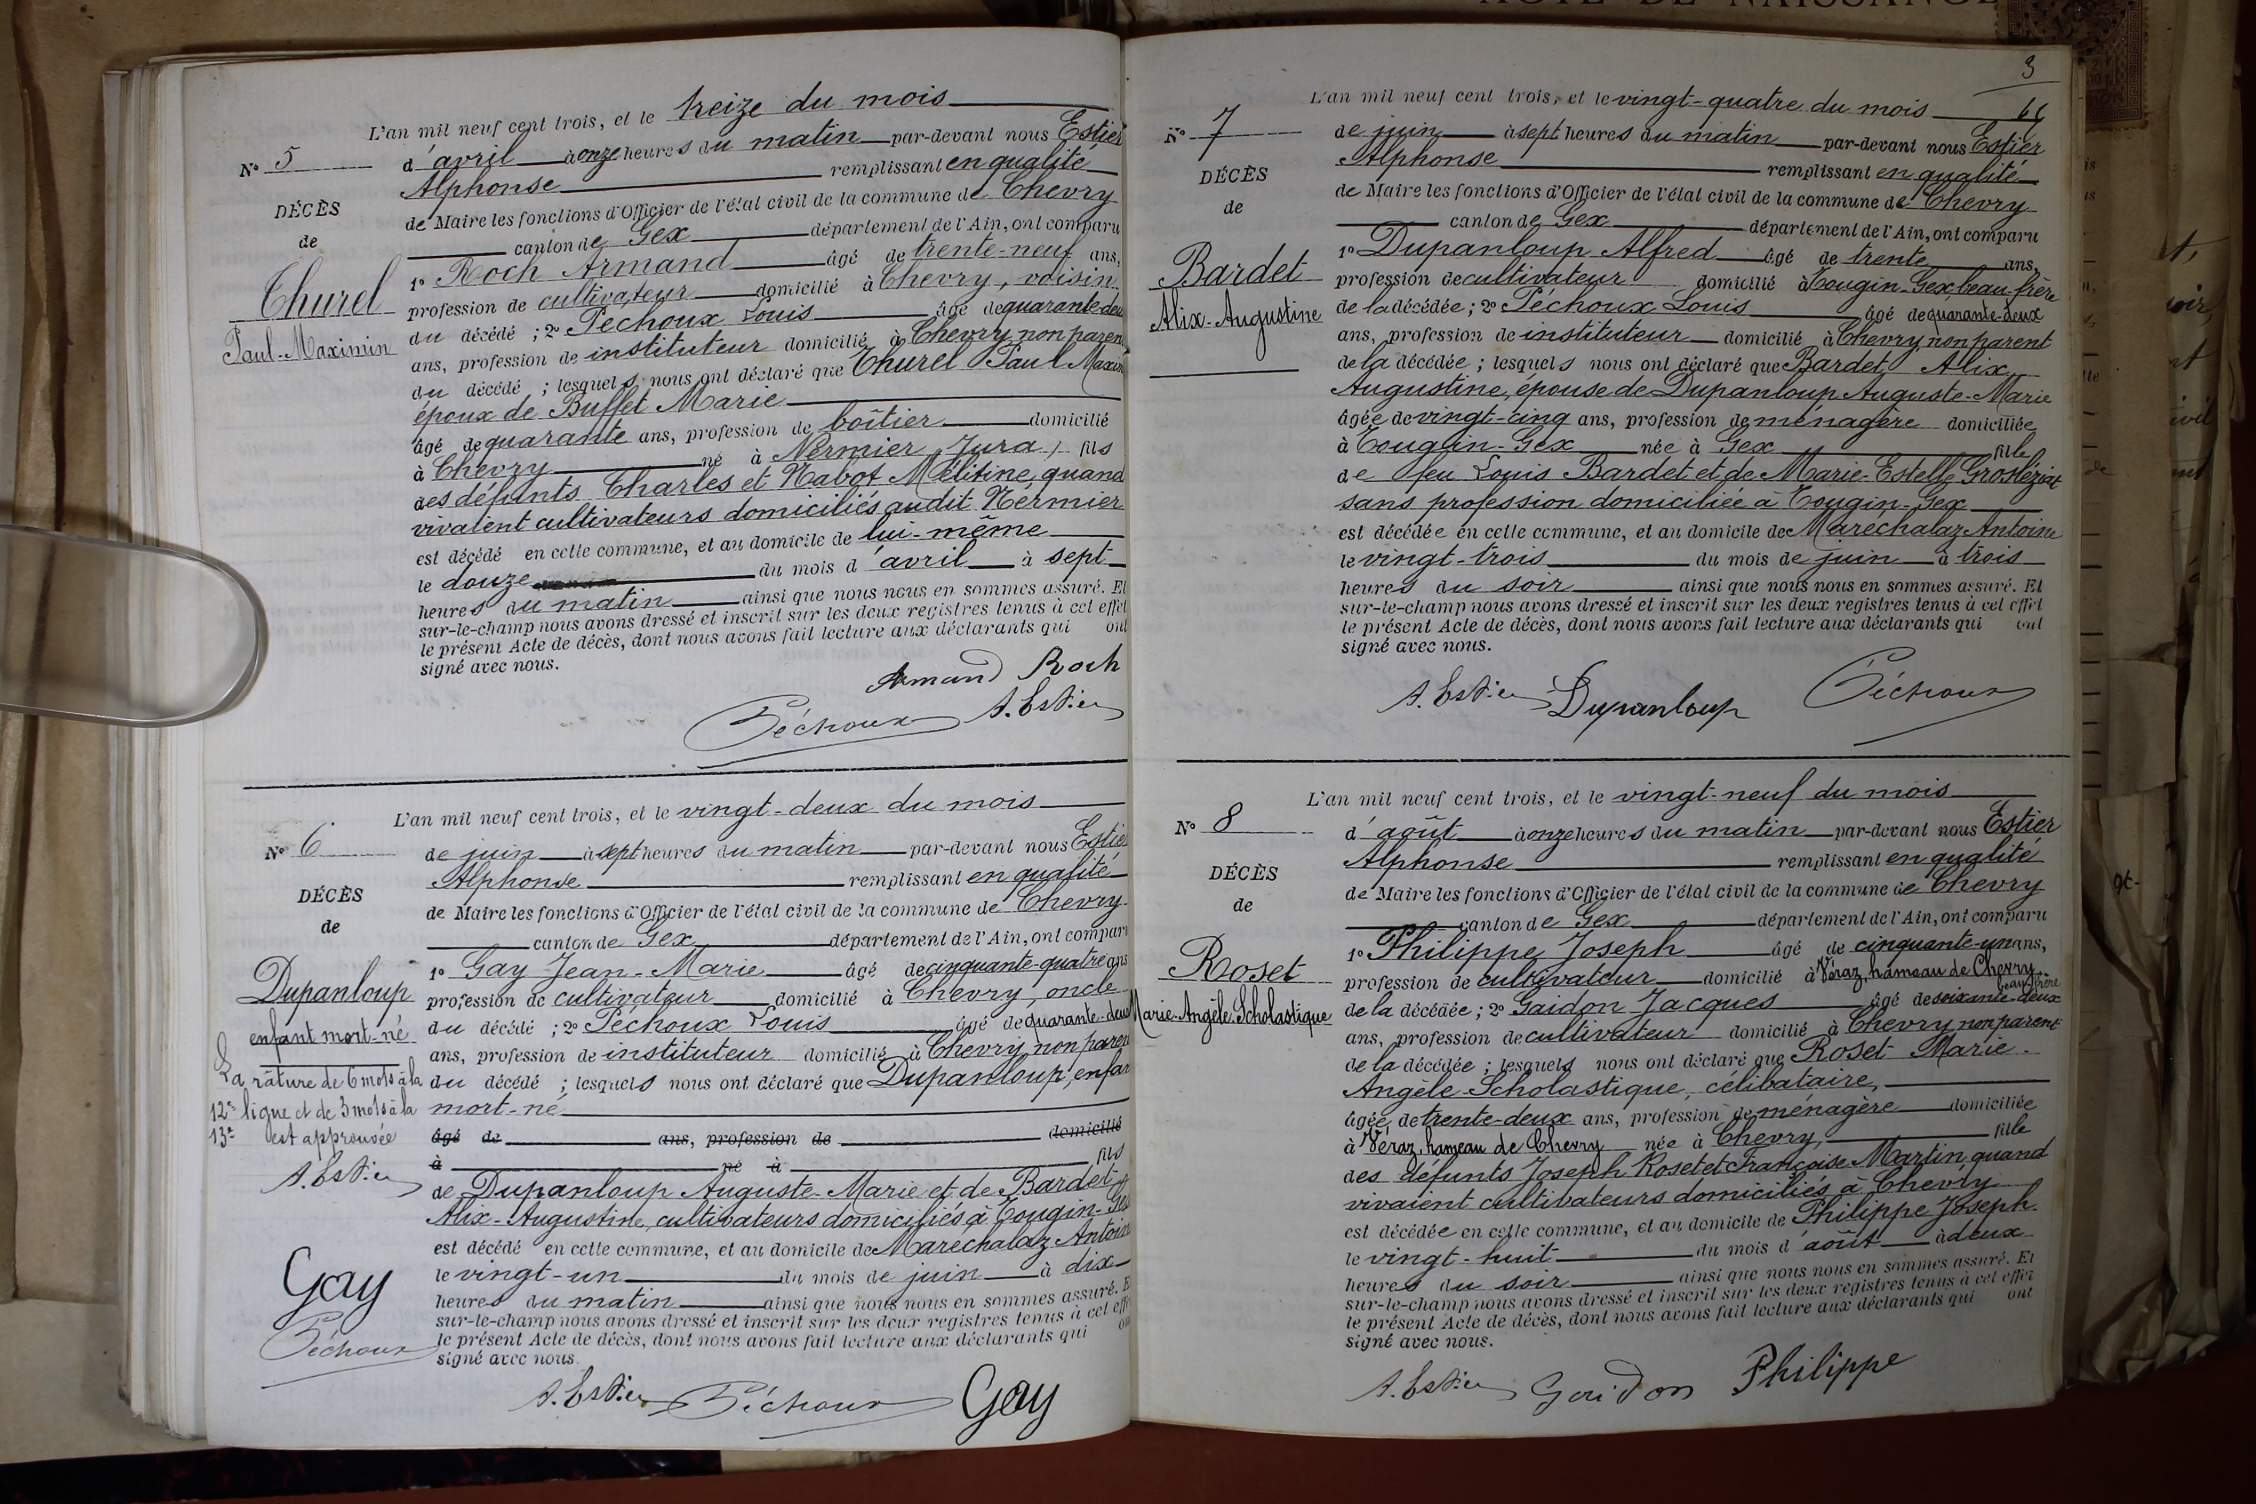 ACTE DE NAISSANCE
L'an mil neuf cent trois, et le treize du mois
N° 5
d'avril à onze heures du matin par-devant nous Estier
Alphonse remplissant en qualité
DÉCÈS
de Maire les fonctions d'Officier de l'état civil de la commune de Chevry
de
canton de Gex département de l'Ain, ont comparu
1° Roch Armand âgé de trente-neuf ans,
Thurel
profession de cultivateur domicilié à Chevry, voisin
Paul-Maximin
du décédé ; 2° Péchoux Louis âgé de quarante-deux
ans, profession de instituteur domicilié à Chevry, non parent
du décédé ; lesquels nous ont déclaré que Thurel Paul Maximin
époux de Buffet Marie
âgé de quarante ans, profession de boîtier domicilié
à Chevry né à Nermier, Jura, fils
des défunts Charles et Nabot Mélitine, quand
vivaient cultivateurs domiciliés audit Nermier
est décédé en cette commune, et au domicile de lui-même
le douze du mois d'avril à sept
heures du matin ainsi que nous nous en sommes assuré. Et
sur-le-champ nous avons dressé et inscrit sur les deux registres tenus à cet effet
le présent Acte de décès, dont nous avons fait lecture aux déclarants qui ont
signé avec nous.
Armand Roch
Péchoux A. Estier
L'an mil neuf cent trois, et le vingt-deux du mois
N° 6
de juin à sept heures du matin par-devant nous Estier
Alphonse remplissant en qualité
DÉCÈS
de Maire les fonctions d'Officier de l'état civil de la commune de Chevry
de
canton de Gex département de l'Ain, ont comparu
1° Gay Jean-Marie âgé de cinquante-quatre ans
Dupanloup
profession de cultivateur domicilié à Chevry, oncle
enfant mort-né
du décédé ; 2° Péchoux Louis âgé de quarante-deux
ans, profession de instituteur domicilié à Chevry, non parent
La râture de 6 mots à la
12e ligne et de 3 mots à la
13e est approuvée
A. Estier
du décédé ; lesquels nous ont déclaré que Dupanloup, enfant
mort-né
âgé de ans, profession de domicilié
à né à fils
de Dupanloup Auguste-Marie et de Bardet
Alix-Augustine, cultivateurs domiciliés à Tougin-Gex
est décédé en cette commune, et au domicile de Maréchalaz Antoine
le vingt-un du mois de juin à dix
heures du matin ainsi que nous nous en sommes assuré. Et
sur-le-champ nous avons dressé et inscrit sur les deux registres tenus à cet effet
le présent Acte de décès, dont nous avons fait lecture aux déclarants qui ont
signé avec nous.
Gay
Péchoux
A. Estier Péchoux Gay
3
L'an mil neuf cent trois, et le vingt-quatre du mois
N° 7
de juin à sept heures du matin par-devant nous Estier
Alphonse remplissant en qualité
DÉCÈS
de Maire les fonctions d'Officier de l'état civil de la commune de Chevry
de
canton de Gex département de l'Ain, ont comparu
1° Dupanloup Alfred âgé de trente ans,
Bardet
profession de cultivateur domicilié à Tougin-Gex, beau-frère
Alix-Augustine
de la décédée ; 2° Péchoux Louis âgé de quarante-deux
ans, profession de instituteur domicilié à Chevry, non parent
de la décédée ; lesquels nous ont déclaré que Bardet Alix
Augustine, épouse de Dupanloup Auguste-Marie
âgée de vingt-cinq ans, profession de ménagère domiciliée
à Tougin-Gex née à Gex fille
de feu Louis Bardet et de Marie-Estelle Grosféziat
sans profession domiciliée à Tougin-Gex
est décédée en cette commune, et au domicile de Maréchalaz Antoine
le vingt-trois du mois de juin à trois
heures du soir ainsi que nous nous en sommes assuré. Et
sur-le-champ nous avons dressé et inscrit sur les deux registres tenus à cet effet
le présent Acte de décès, dont nous avons fait lecture aux déclarants qui ont
signé avec nous.
A. Estier Dupanloup Péchoux
L'an mil neuf cent trois, et le vingt-neuf du mois
N° 8
d'août à onze heures du matin par-devant nous Estier
Alphonse remplissant en qualité
DÉCÈS
de Maire les fonctions d'Officier de l'état civil de la commune de Chevry
de
canton de Gex département de l'Ain, ont comparu
1° Philippe Joseph âgé de cinquante-un ans,
Roset
profession de cultivateur domicilié à Véraz, hameau de Chevry, beau-frère
Marie-Angèle-Scholastique
de la décédée ; 2° Gaidon Jacques âgé de soixante-deux
ans, profession de cultivateur domicilié à Chevry, non parent
de la décédée ; lesquels nous ont déclaré que Roset Marie
Angèle-Scholastique, célibataire,
âgée de trente-deux ans, profession de ménagère domiciliée
à Véraz, hameau de Chevry née à Chevry, fille
des défunts Joseph Roset et Françoise Martin, quand
vivaient cultivateurs domiciliés à Chevry
est décédée en cette commune, et au domicile de Philippe Joseph
le vingt-huit du mois d'août à deux
heures du soir ainsi que nous nous en sommes assuré. Et
sur-le-champ nous avons dressé et inscrit sur les deux registres tenus à cet effet
le présent Acte de décès, dont nous avons fait lecture aux déclarants qui ont
signé avec nous.
A. Estier Gaidon Philippe